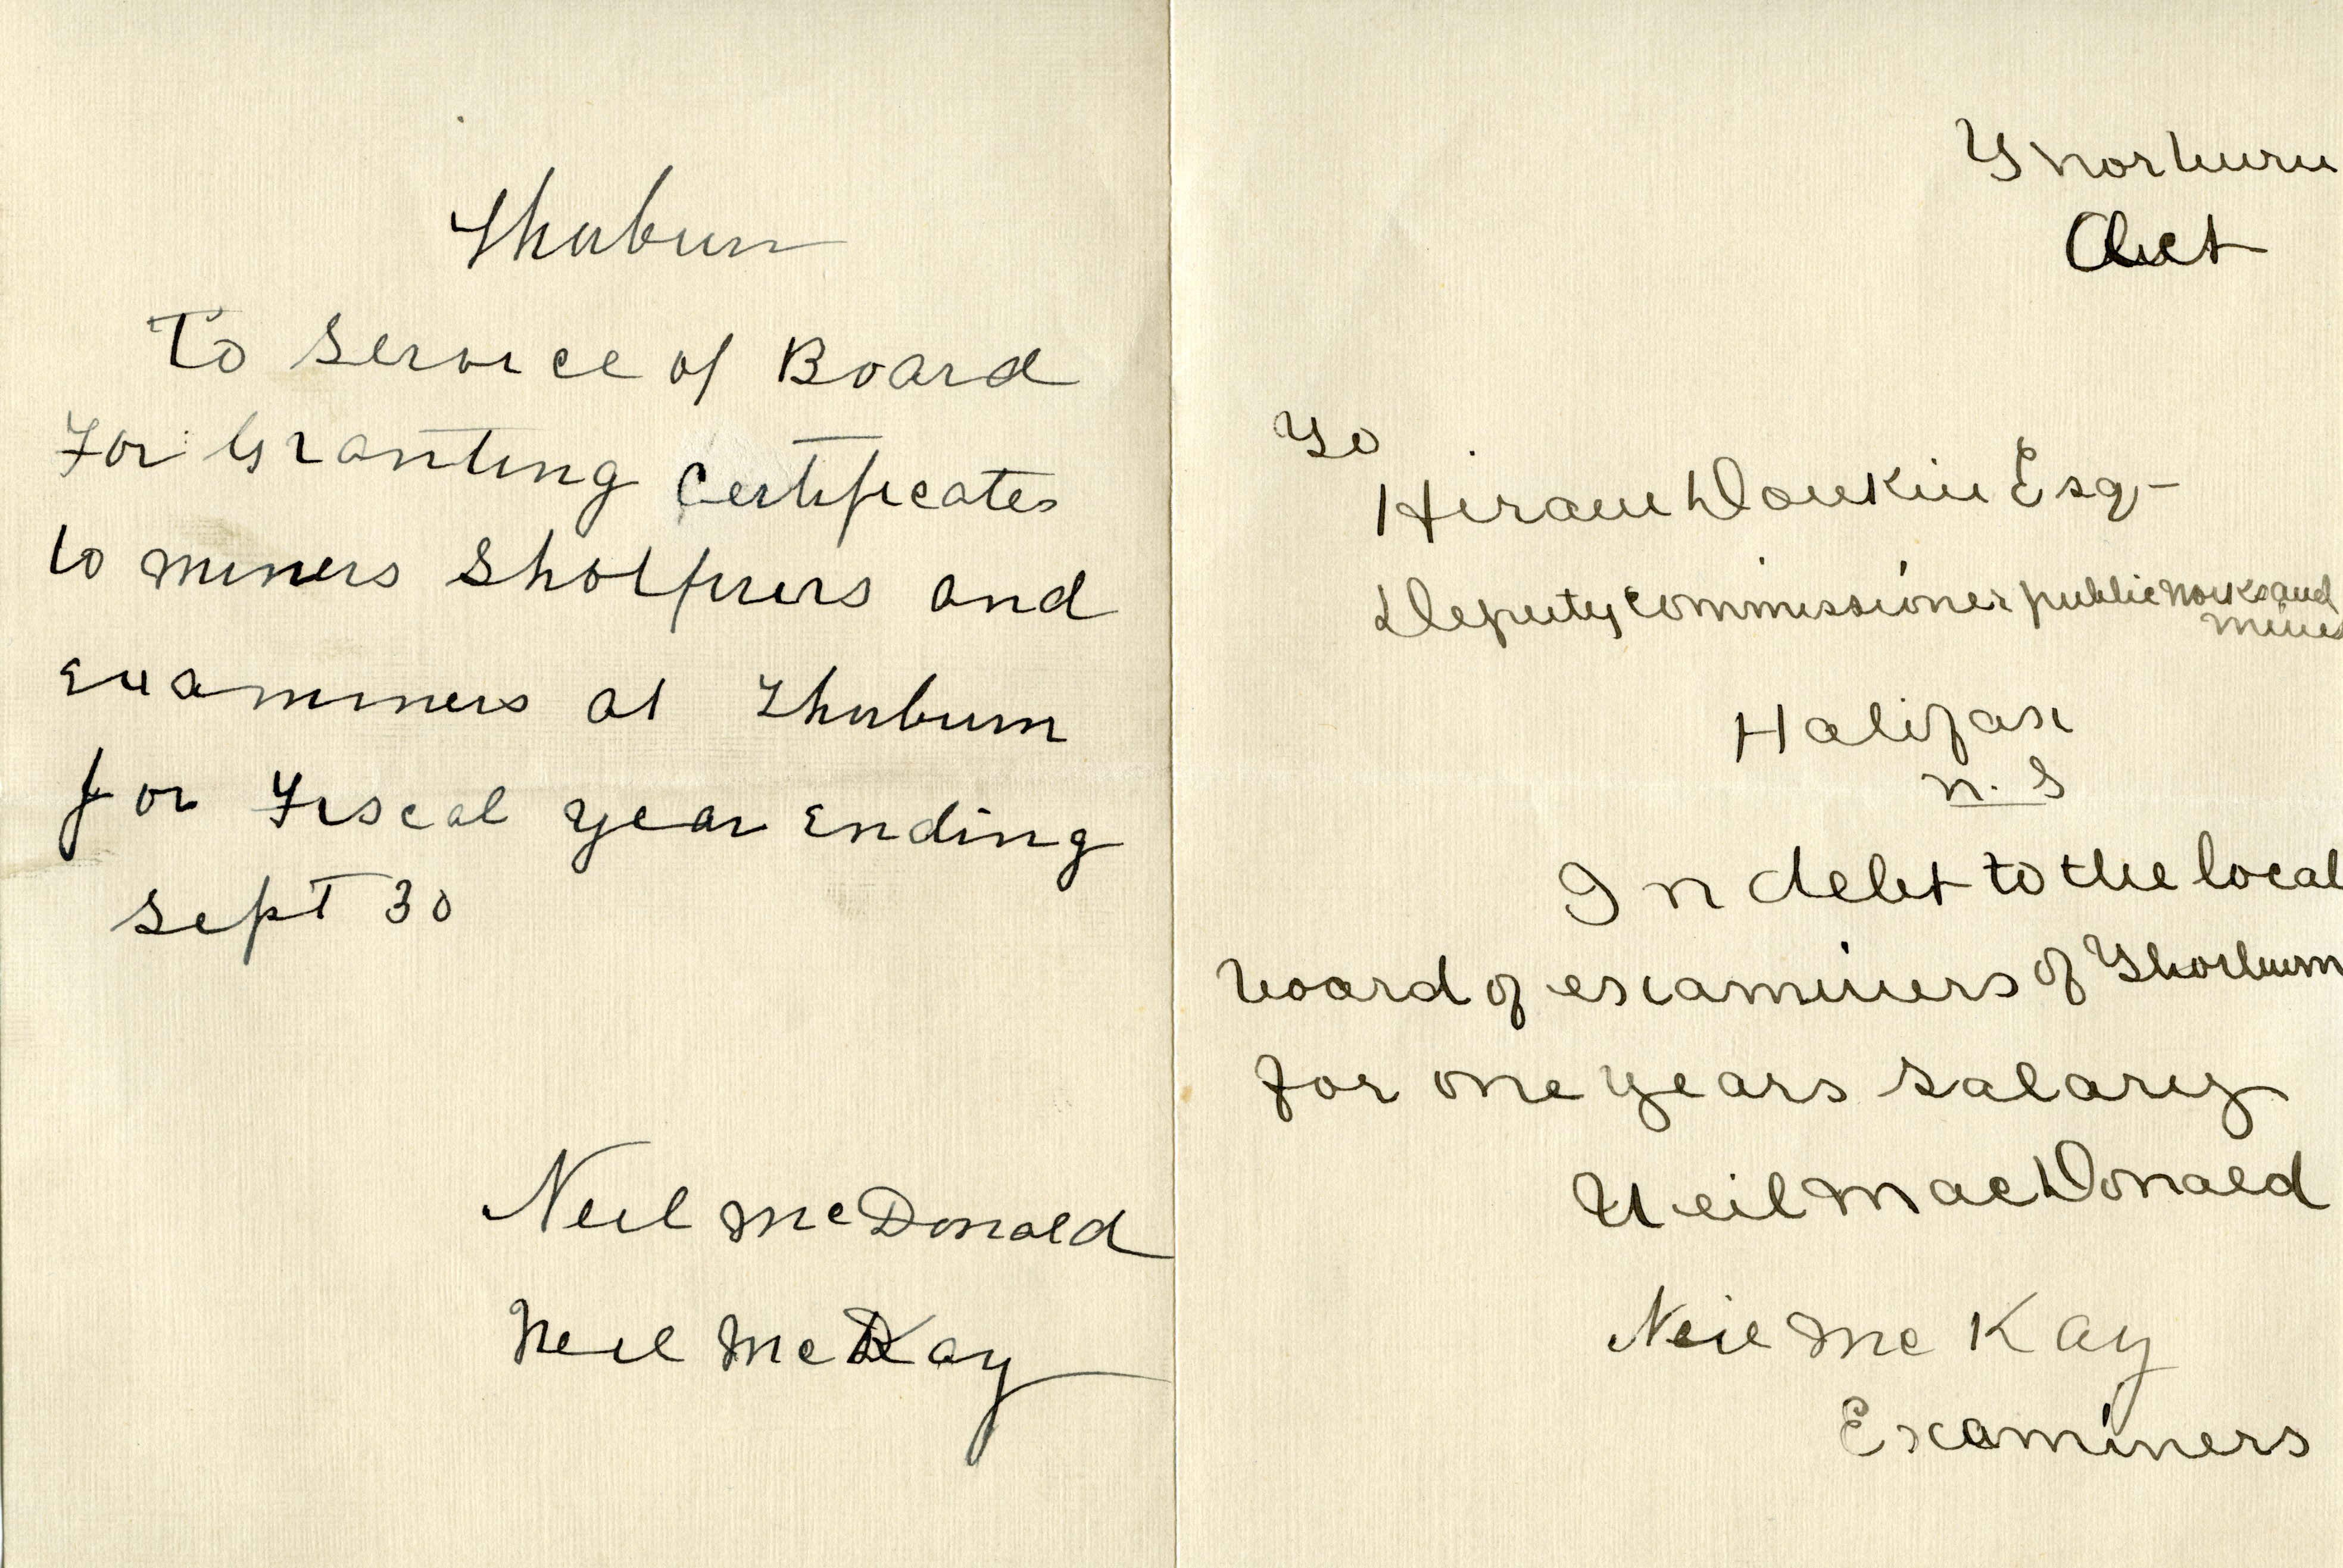 Thorburn
To Service of Board
For Granting Certificates
to miners Shotfirers and
Examiners at Thorburn
for Fiscal year Ending
Sept 30
Neil McDonald
Neil McKay
Thorburn
Oct
To
Hiram Donkin Esq-
Deputy commissioner public works and
mines
Halifax
N. S
In debt to the local
board of examiners of Thorburn
for one years salary
Neil MacDonald
Neil McKay
Examiners